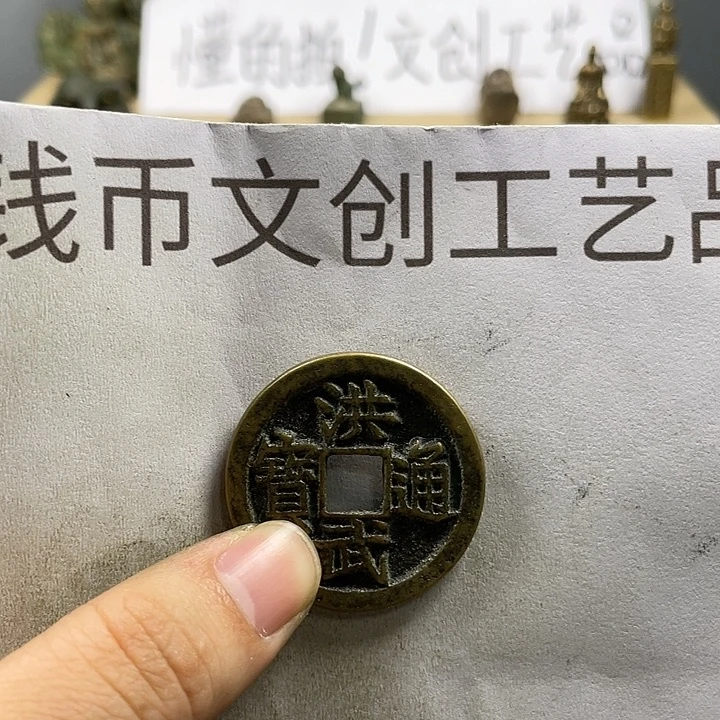 懂的拍！文创工艺品
钱币文创工艺品
洪武通寶